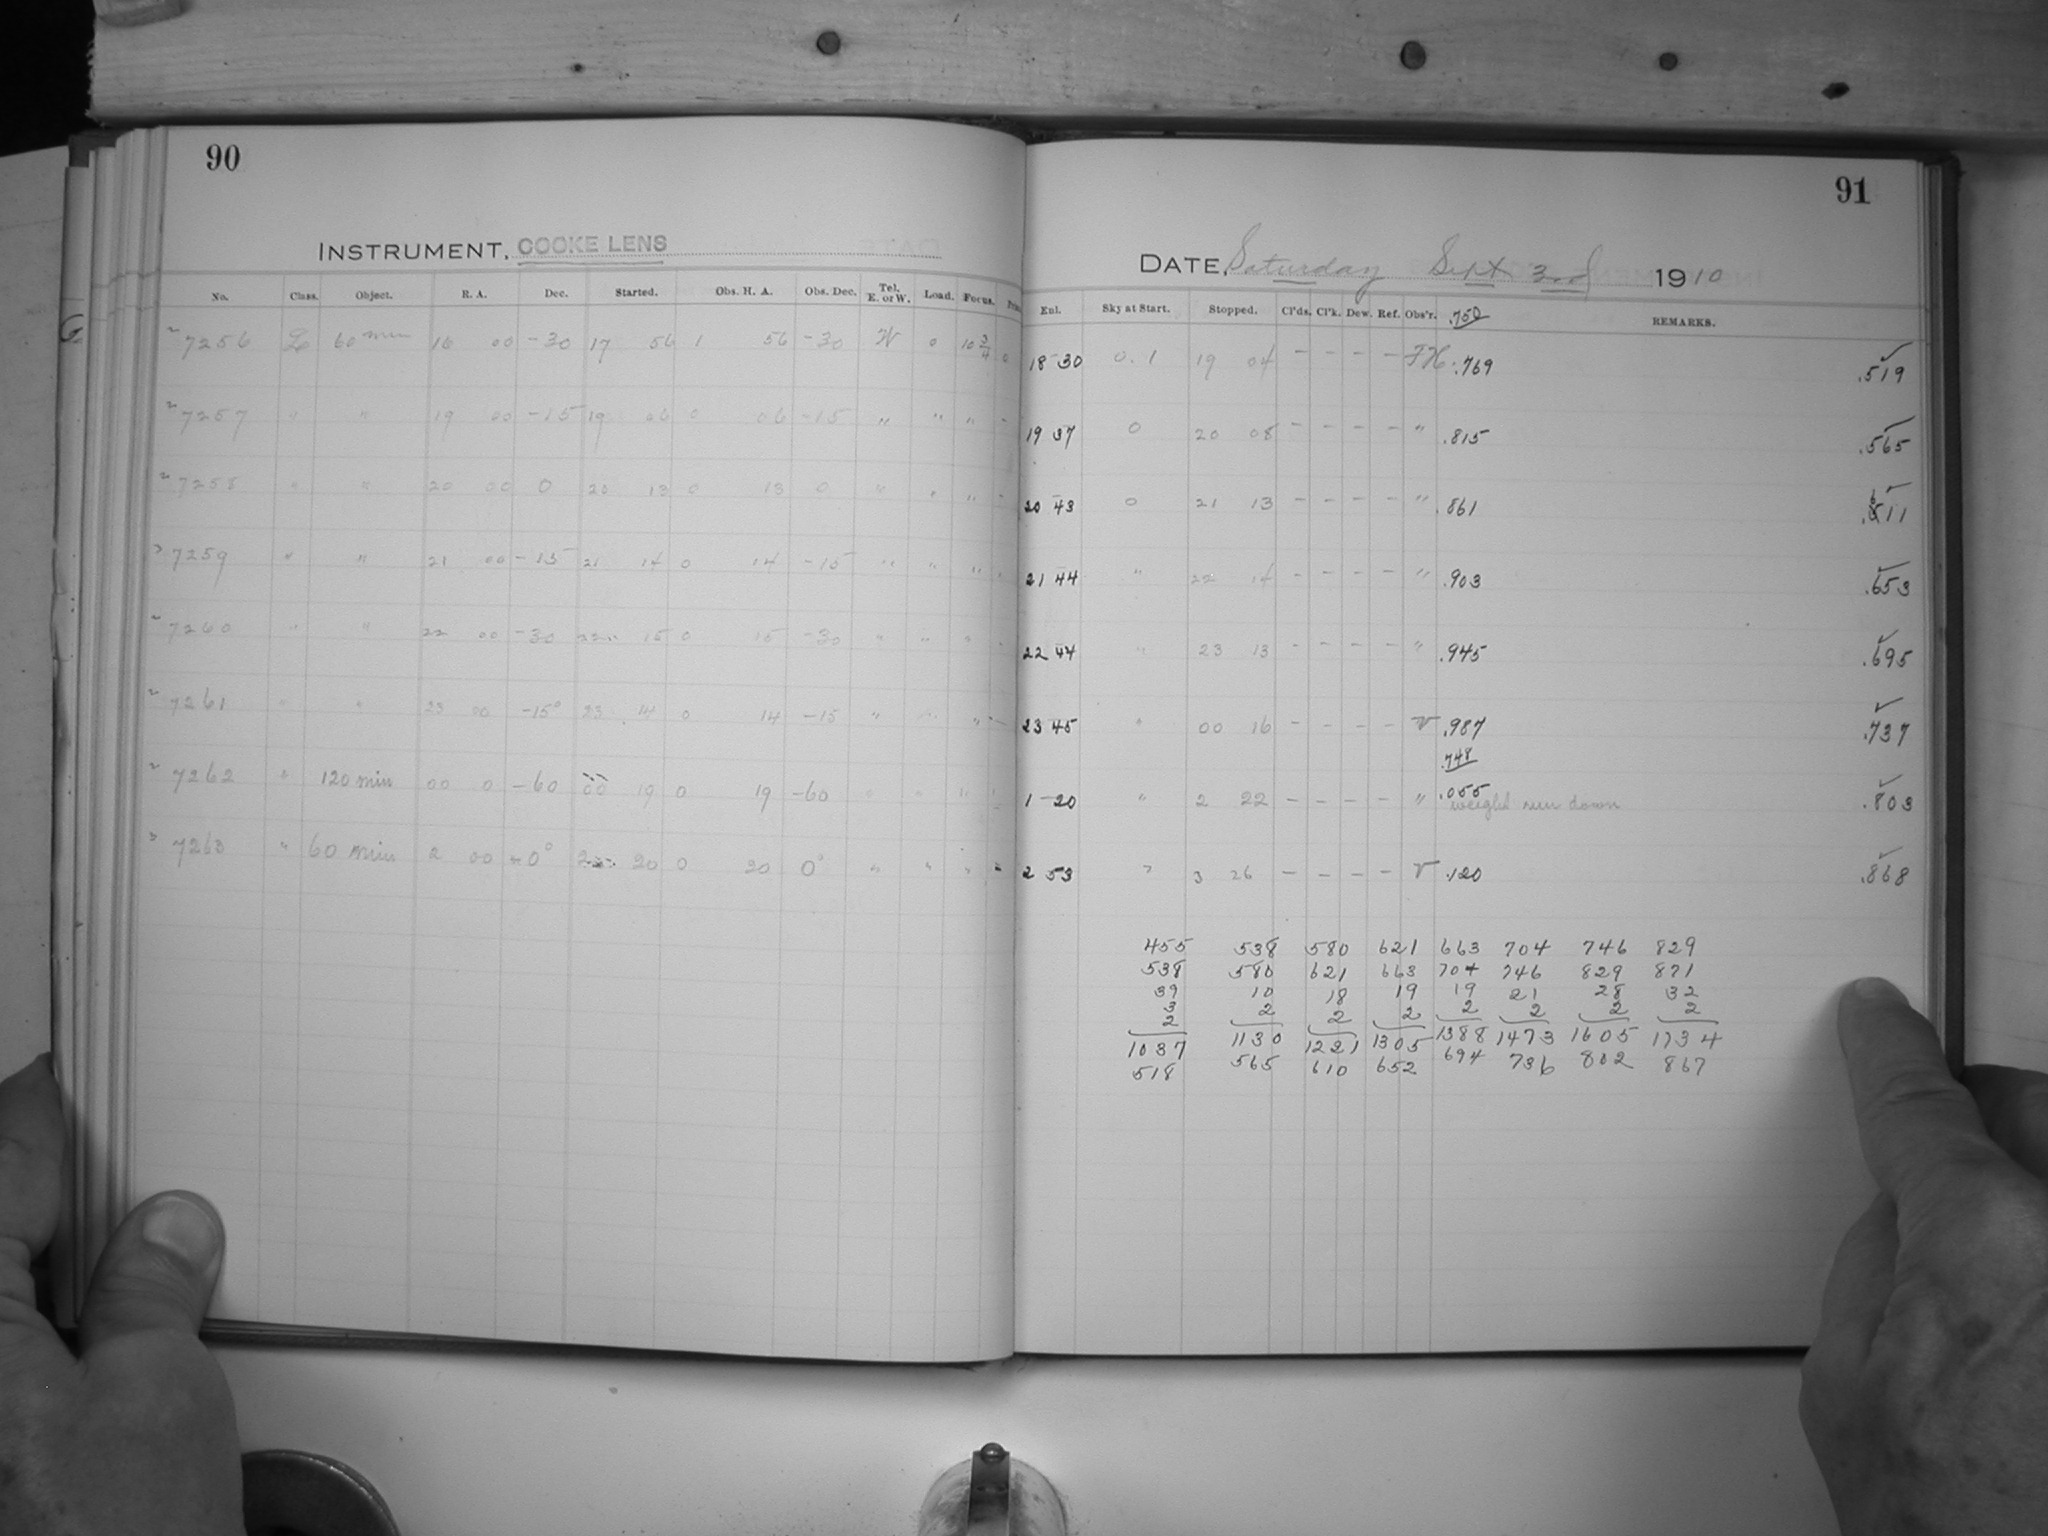 90
INSTRUMENT, COOKE LENS
No. Class. Object. R. A. Dec. Started. Obs. H. A. Obs. Dec. Tel. E. or W. Load. Focus.
7256 L 60 min 16 00 -30 17 56 1 56 -30 W 0 10 3/4 0
7257 " " 19 00 -15 19 06 0 06 -15 " " " -
7258 " " 20 00 0 20 13 0 13 0 " " " -
7259 " " 21 00 -15 21 14 0 14 -15 " " "
7260 " " 22 00 -30 22 15 0 15 -30 " " " -
7261 " " 23 00 -15° 23 14 0 14 -15 " " " -
7262 " 120 min 00 0 -60 00 19 0 19 -60 " " "
7263 " 60 min 2 00 0° 2 20 0 20 0° " " " "
91
DATE, Saturday Sept 3rd 1910
Enl. Sky at Start. Stopped. Cl'ds. Cl'k. Dew. Ref. Obs'r. .750 REMARKS.
18 30 0.1 19 04 - - - - FH .769 .519
19 37 0 20 08 - - - - " .815 .565
20 43 0 21 13 - - - - " .861 .611
21 44 " 22 14 - - - - " .903 .653
22 44 " 23 13 - - - - " .945 .695
23 45 " 00 16 - - - - V .987 .737
.748
1 20 " 2 22 - - - - " .055 weight run down .803
2 53 " 3 26 - - - - V .120 .868
455 538 580 621 663 704 746 829
538 580 621 663 704 746 829 871
39 10 18 19 19 21 28 32
3
2 2 2 2 2 2 2 2
1037 1130 1221 1305 1388 1473 1605 1734
518 565 610 652 694 736 802 867